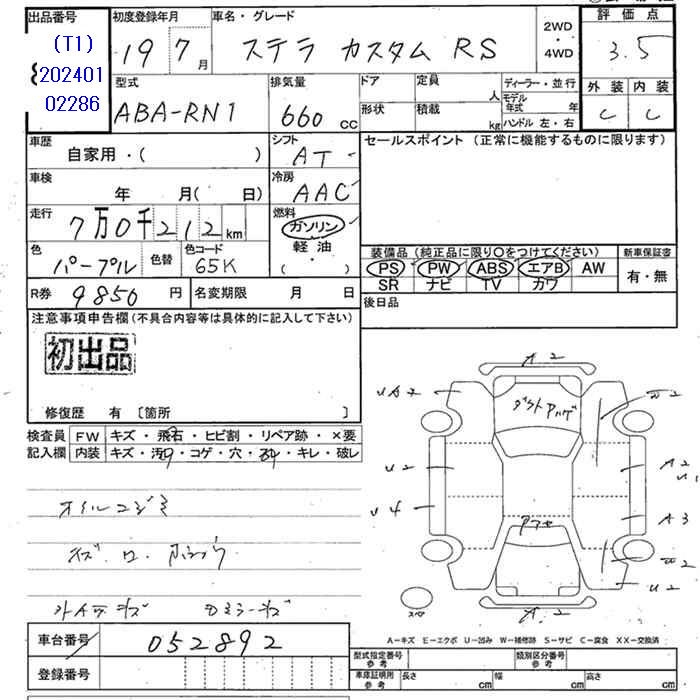 出品番号
(T1)
202401
02286
初度登録年月
19 7 月
車名・グレード
ステラ カスタム RS
2WD
4WD
評価点
3.5
型式
ABA-RN1
排気量
660 cc
ドア
定員
人
形状
積載
kg
ディーラー・並行
モデル年式 年
ハンドル 左・右
外装 内装
C C
車歴
自家用・( )
シフト
AT
セールスポイント (正常に機能するものに限ります)
車検
年 月( 日)
冷房
AAC
走行
7万0千212 km
燃料
ガソリン
軽油
( ・ )
色
パープル
色替
色コード
65K
装備品 (純正品に限り○をつけてください)
PS PW ABS エアB AW
SR ナビ TV カワ
新車保証書
有・無
R券 9850 円
名変期限 月 日
後日品
注意事項申告欄 (不具合内容等は具体的に記入して下さい)
初出品
修復歴 有 〔箇所 〕
検査員
記入欄
FW キズ・飛石・ヒビ割・リペア跡・×要
内装 キズ・汚れ・コゲ・穴・・キレ・破レ
A2
UA2
W2
U2
A2
U1
U4
A3
W2
U2
A.2
スペア
A-キズ E-エクボ U-凹み W-補修跡 S-サビ C-腐食 XX-交換済
車台番号
052892
登録番号
型式指定番号
参考
類別区分番号
参考
車庫証明用
参考
長さ cm
幅 cm
高さ cm